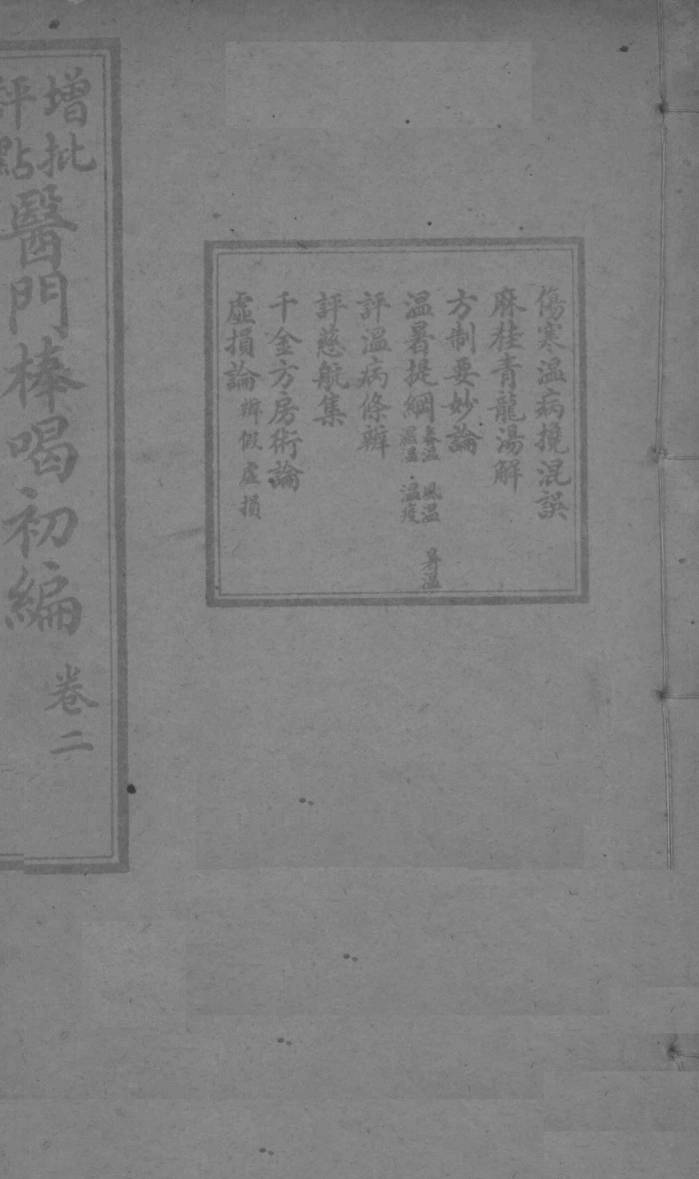 傷寒溫病攪混誤
麻桂青龍湯解
方制要妙論
溫暑提綱 春溫 風溫 暑溫 濕溫 溫疫
評溫病條辨
評慈航集
千金方房術論
虛損論 辨假虛損
增批評點醫門棒喝初編 卷二